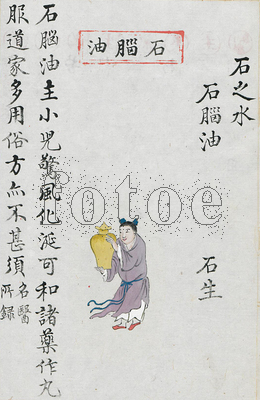 石之水
石腦油 石生
石腦油
石腦油主小兒驚風化涎可和諸藥作丸
服道家多用俗方亦不甚須名醫
所錄
otoe